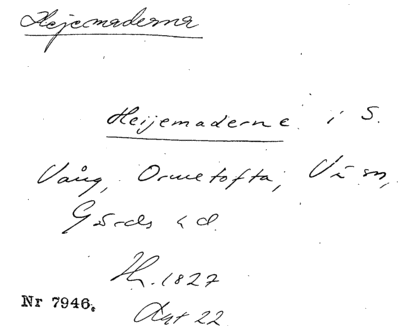 Hejemaderna
Heijemaderne i S.
Vång, Ormetofta, Vä sn,
Gärds hd.
Hr. 1827
Akt 22
Nr 7946.